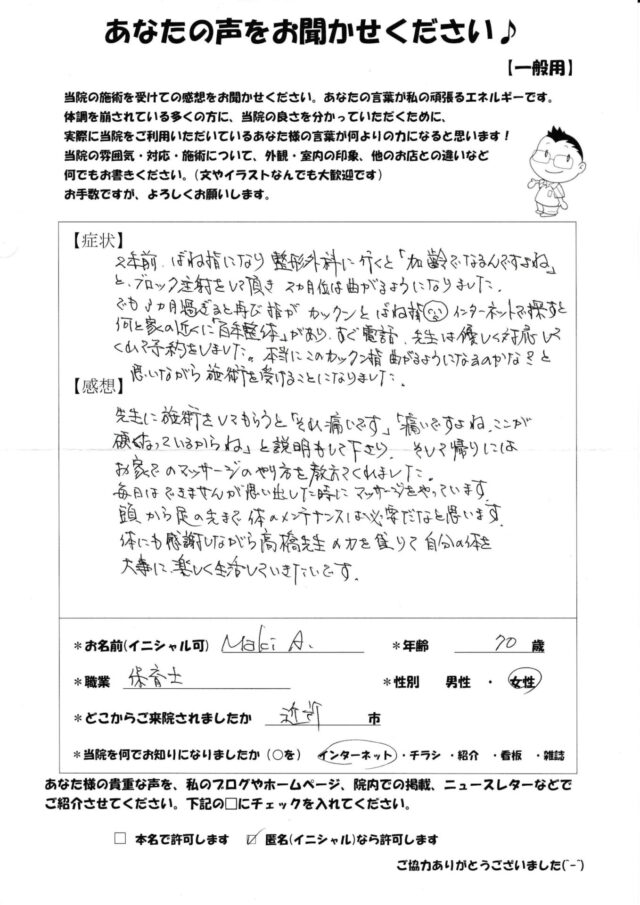 あなたの声をお聞かせください♪
【一般用】
当院の施術を受けての感想をお聞かせください。あなたの言葉が私の頑張るエネルギーです。
体調を崩されている多くの方に、当院の良さを分かっていただくために、
実際に当院をご利用いただいているあなた様の言葉が何よりの力になると思います！
当院の雰囲気・対応・施術について、外観・室内の印象、他のお店との違いなど
何でもお書きください。(文やイラストなんでも大歓迎です)
お手数ですが、よろしくお願いします。
【症状】
2年前、ばね指になり整形外科に行くと「加齢でなるんですよね」
と、ブロック注射をして頂き 2カ月位は曲がるようになりました。
でも 過ぎると再び指がカックンとばね指 インターネットで探すと
何と家の近くに「 整体」があり、すぐ電話、先生は優しく対応して
くれて予約をしました。本当にこのカックン指曲がるようになるのかな？と
思いながら施術を受けることになりました。
【感想】
先生に施術をしてもらうと「それ痛いです」「痛いですよね、ここが
硬くなっているからね」と説明もして下さり、そして帰りには
お家でのマッサージのやり方を教えてくれました。
毎日はできませんが思い出した時にマッサージをやっています。
頭から足の先まで体のメンテナンスは必要だなと思います。
体にも感謝しながら高橋先生の力を借りて自分の体を
大事に、楽しく生活していきたいです。
＊お名前(イニシャル可) Maki A. ＊年齢 70 歳
＊職業 保育士 ＊性別 男性 ・ 女性
＊どこからご来院されましたか 近所 市
＊当院を何でお知りになりましたか（○を） インターネット・チラシ・紹介・看板・雑誌
あなた様の貴重な声を、私のブログやホームページ、院内での掲載、ニュースレターなどで
ご紹介させてください。下記の□にチェックを入れてください。
□ 本名で許可します ☑ 匿名(イニシャル)なら許可します
ご協力ありがとうございました(^-^)